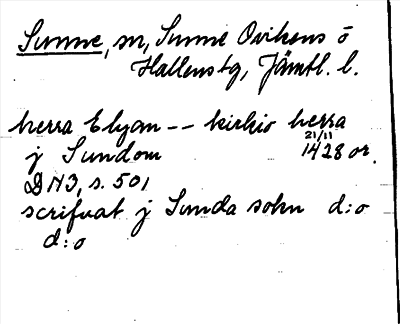 Sunne, sn, Sunne Ovikens o
Hallens tg, Jämtl. l.
herra Elyan -- kirkio herra
j Sundom 21/11 1428 or.
DN3, s. 501
scrifuat j Sunda sokn d:o
d:o